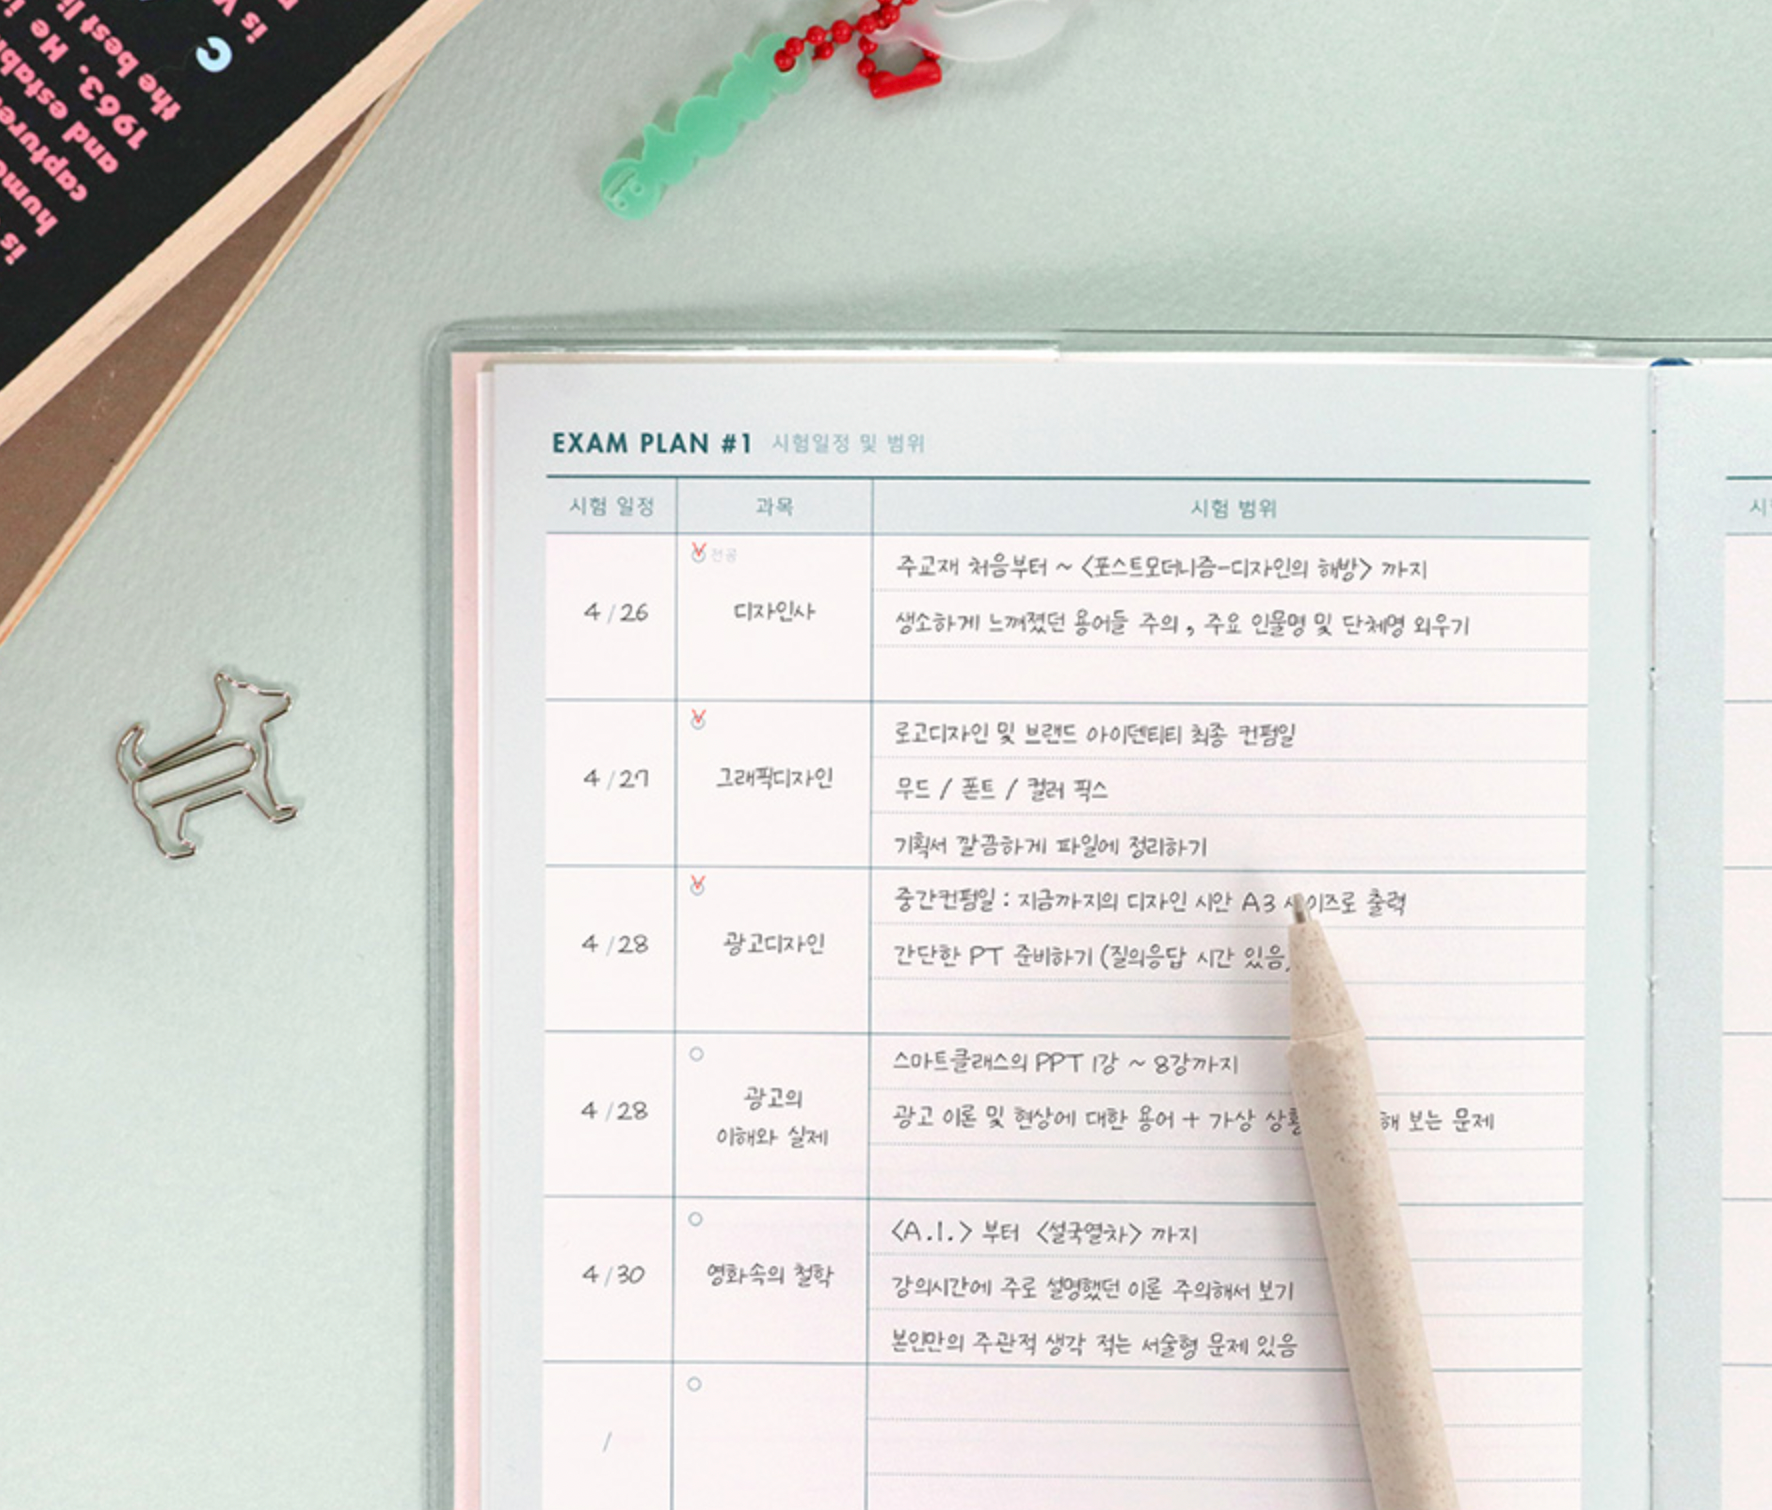 is
the best li
1963. He i
and establ
capture
huma
is
EXAM PLAN #1 시험일정 및 범위
시험 일정 과목 시험 범위
4/26
전공
디자인사
주교재 처음부터 ~ <포스트모더니즘-디자인의 해방> 까지
생소하게 느껴졌던 용어들 주의, 주요 인물명 및 단체명 외우기
4/27
그래픽디자인
로고디자인 및 브랜드 아이덴티티 최종 컨펌일
무드 / 폰트 / 컬러 픽스
기획서 깔끔하게 파일에 정리하기
4/28
광고디자인
중간컨펌일 : 지금까지의 디자인 시안 A3 사이즈로 출력
간단한 PT 준비하기 (질의응답 시간 있음)
4/28
광고의
이해와 실제
스마트클래스의 PPT 1강 ~ 8강까지
광고 이론 및 현상에 대한 용어 + 가상 상황 해 보는 문제
4/30
영화속의 철학
<A.I.> 부터 <설국열차> 까지
강의시간에 주로 설명했던 이론 주의해서 보기
본인만의 주관적 생각 적는 서술형 문제 있음
/
시